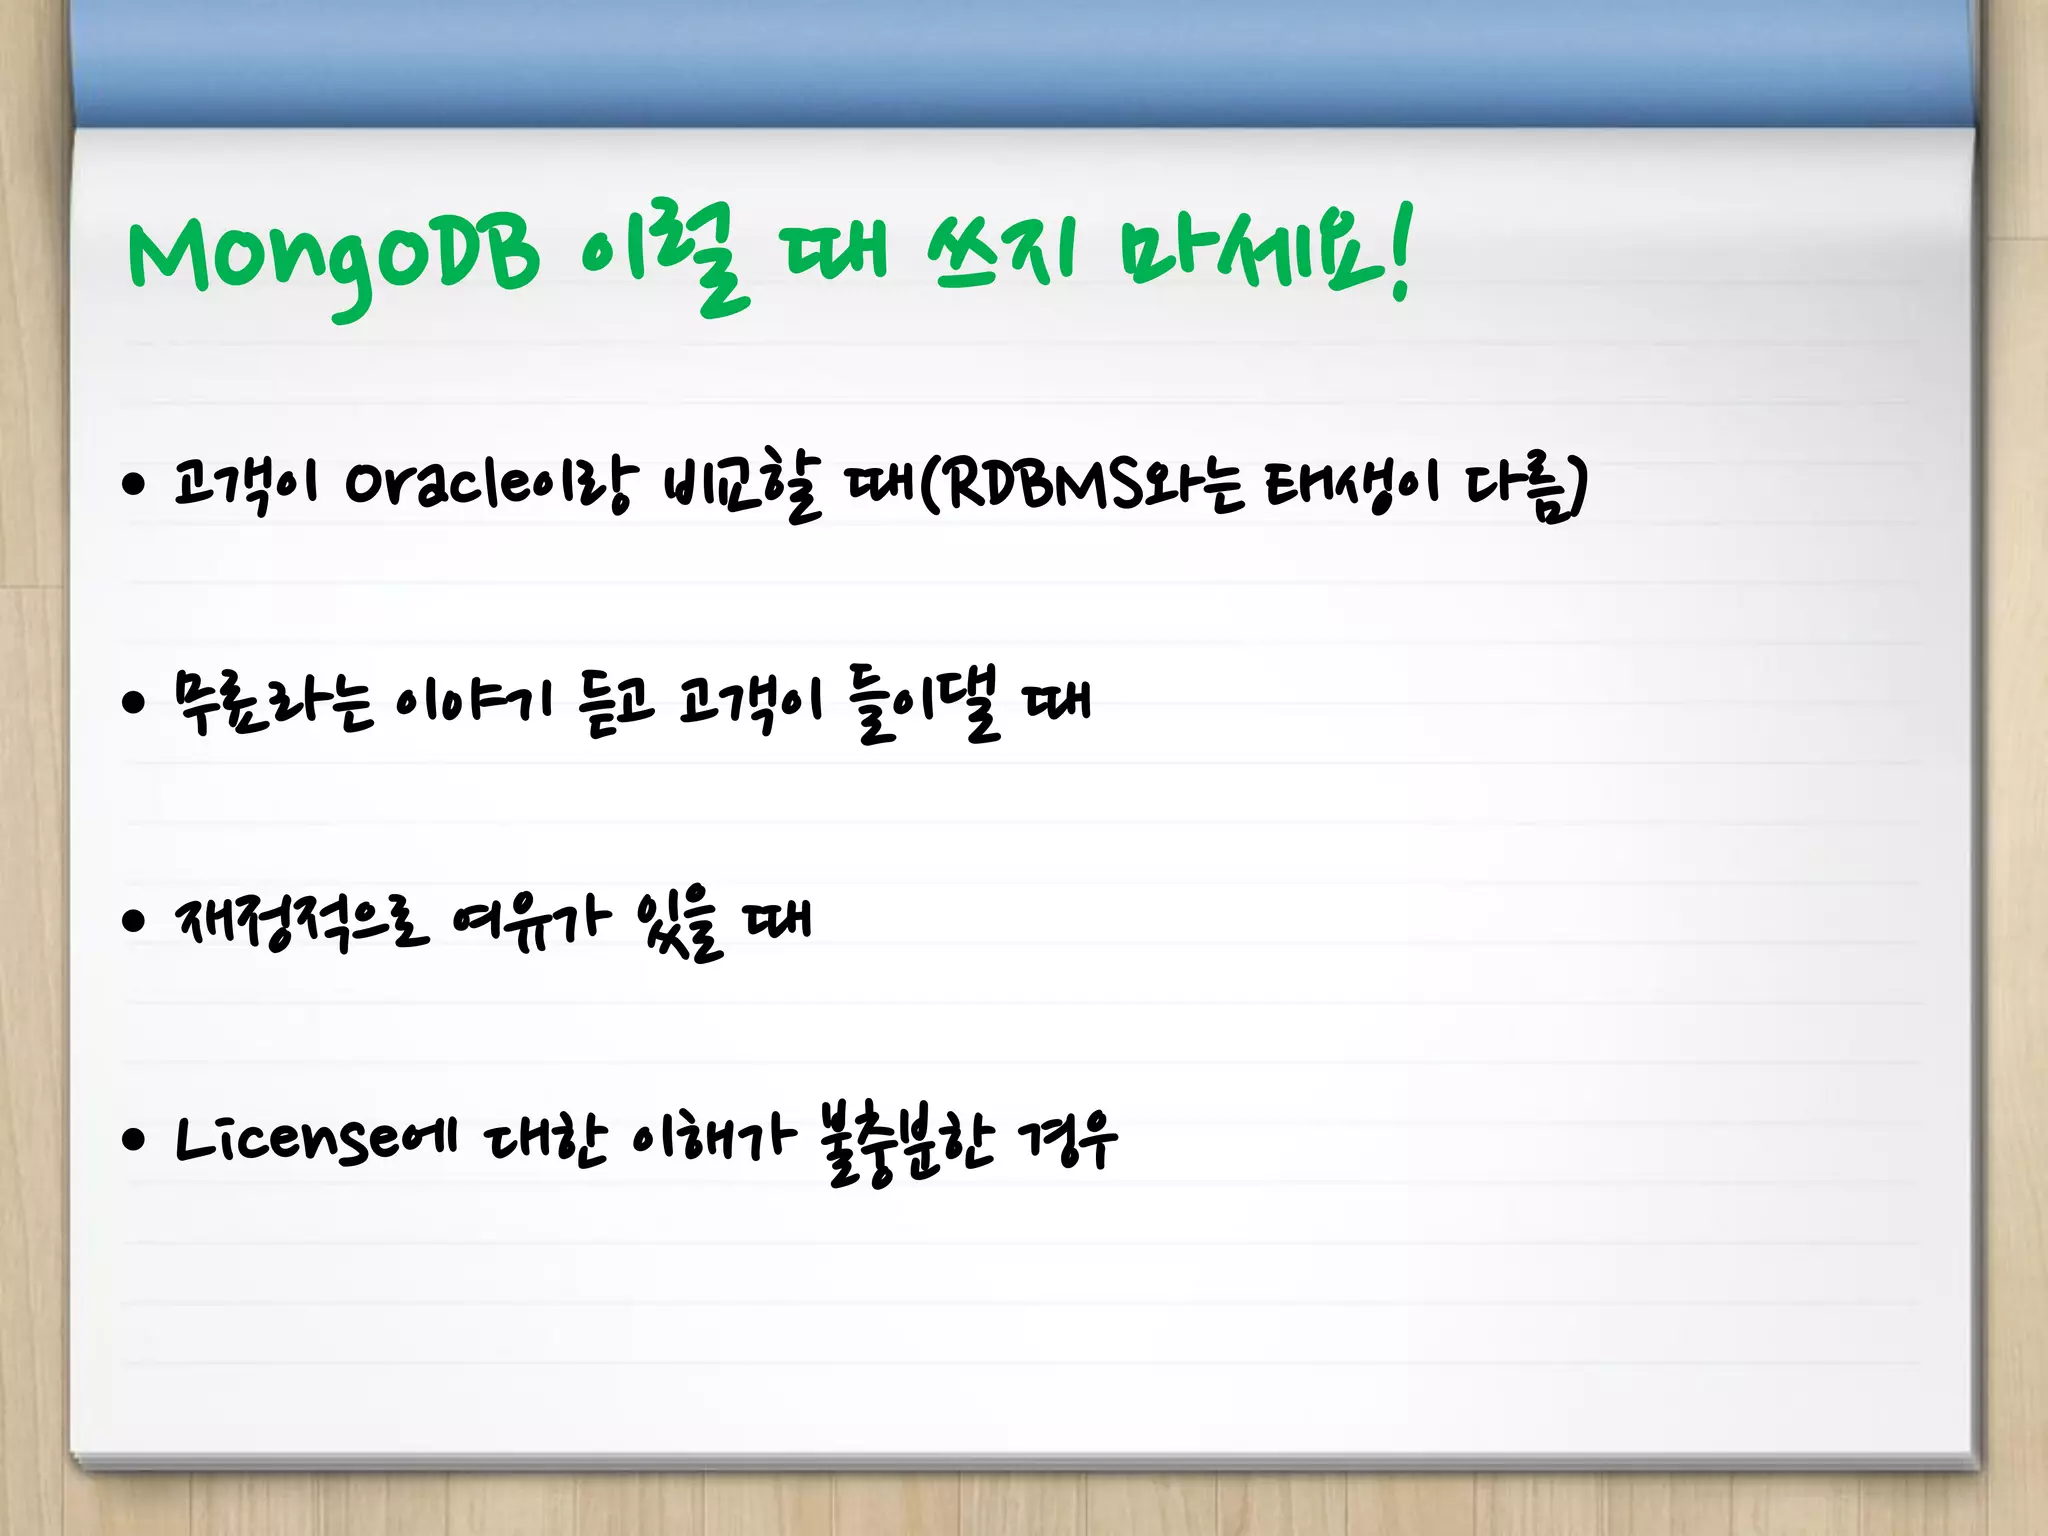 MongoDB 이럴 때 쓰지 마세요!
• 고객이 Oracle이랑 비교할 때(RDBMS와는 태생이 다름)
• 무료라는 이야기 듣고 고객이 들이댈 때
• 재정적으로 여유가 있을 때
• License에 대한 이해가 불충분한 경우